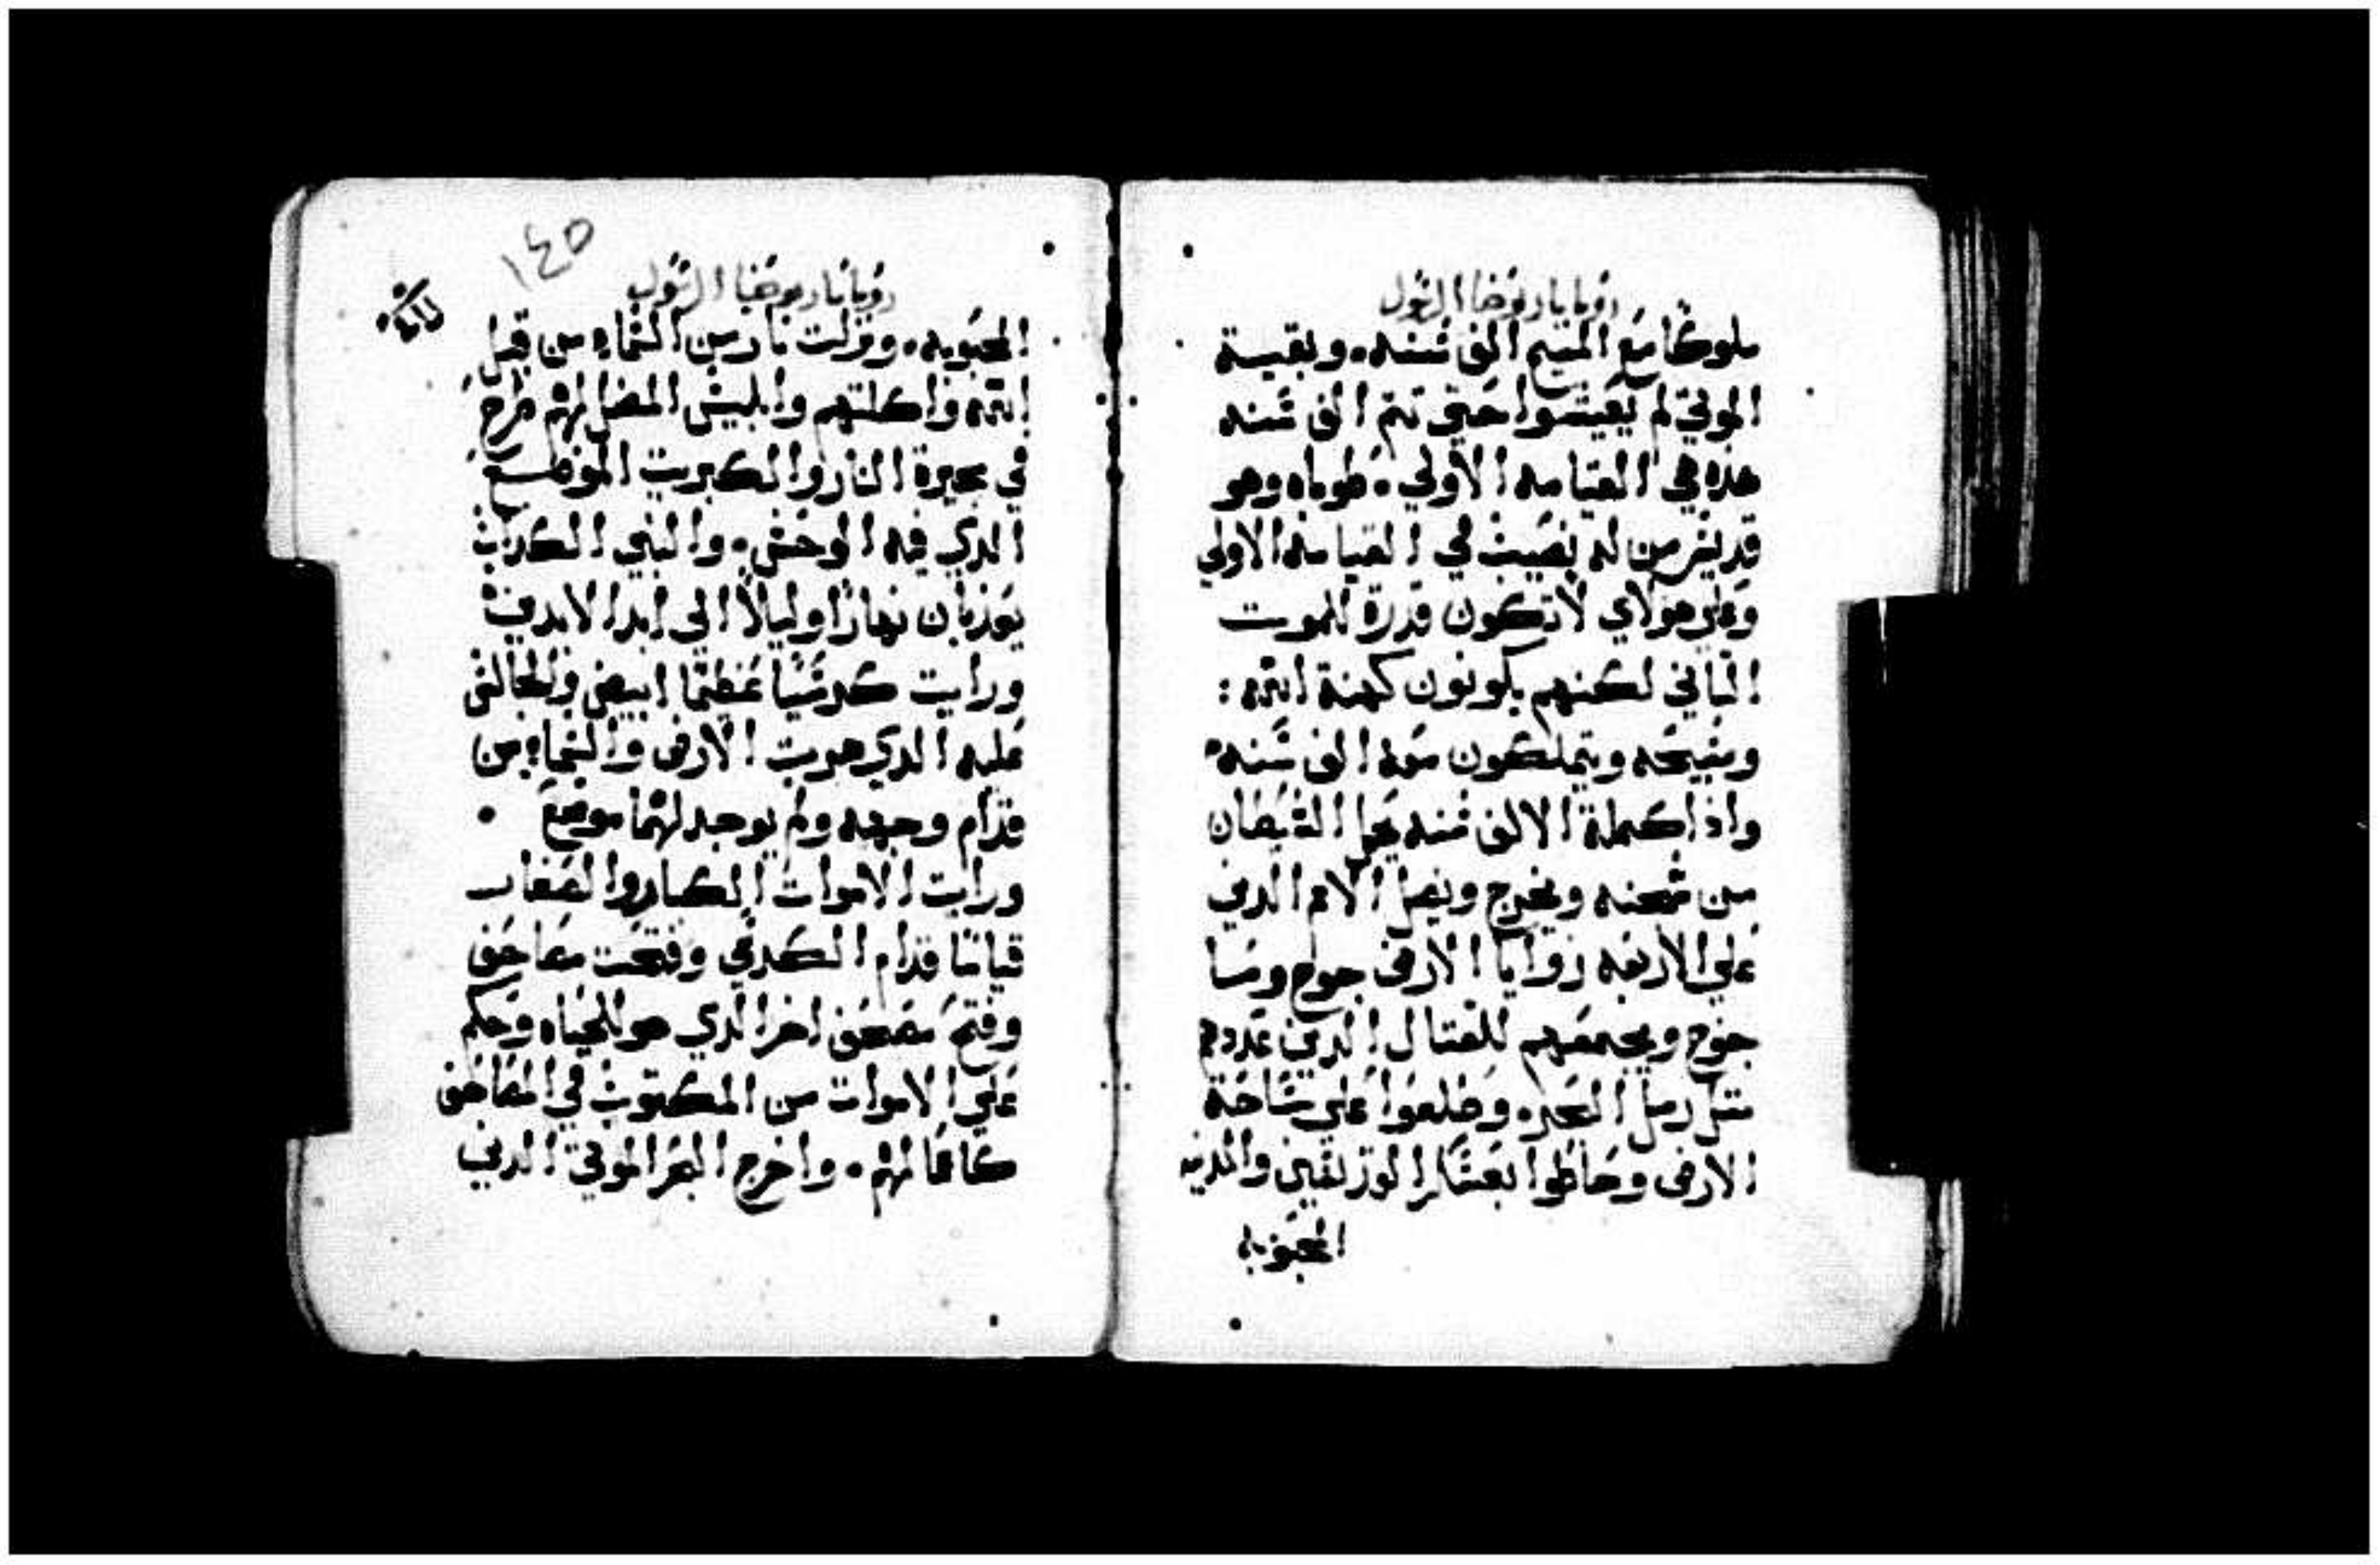 رويا يار يوحنا الرسول
ملوكًا مع المسيح الف سنه٠ وبقية
الموتي لم يعيشوا حتي تتم الف سنه
هذه هي القيامه الاولي٠ طوباه وهو
قديس من له نصيب في القيامه الاولي
وعلي هولاي لا تكون قدرة للموت
التاني لكنهم يكونون كهنة الله:
ومسيحه ويتملكون معه الف سنه٠
واذا كملة الالف سنه يحل الشيطان
من سجنه ويخرج ويضل الامم الدين
علي الاربعه زوايا الارض جوج وما
جوج ويجمعهم للقتال الدين عددهم
متل رمل البحر٠ وطلعوا علي ساحة
الارض وحاطوا بعساكر القديسين والمدينه
المحبوبه
رويا يار يوحنا الرسول
١٤٥
المحبوبه٠ ونزلت نار من السماء من قبل
الله واكلتهم وابليس المضل لهم طرح
في بحيرة النار والكبريت الموضع
الدي فيه الوحش٠ والنبي الكداب
يعذبان نهارًا وليلاً الي ابد الابدين
ورايت كرسيًا عظيمًا ابيض والجالس
عليه الدي هربت الارض والسماء من
قدام وجهه ولم يوجد لهما موضع ٠
ورايت الاموات الكبار والصغار
قيامًا قدام الكرسي وفتحت مصاحف
وفتح مصحف اخر الدي هو للحياه وحكم
علي الاموات من المكتوب في المصاحف
كاعمالهم٠ واخرج البحر الموتي الدين